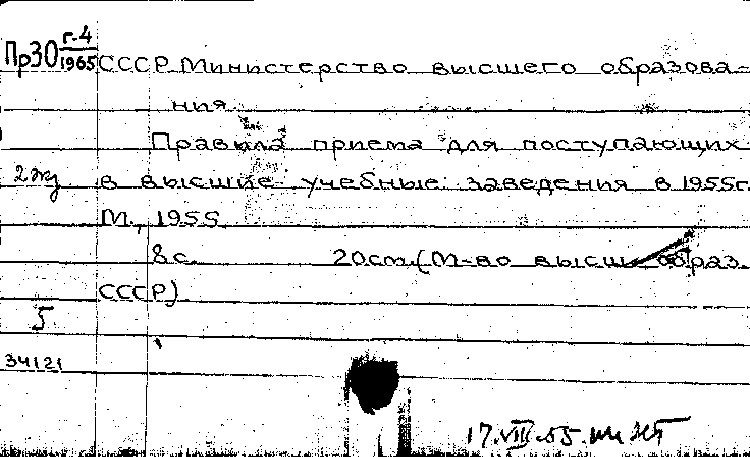 Пр30 г-4
1965
СССР Министерство высшего образова-
ния.
Правила приема для поступающих
2 экз
в высшие учебные заведения в 1955г.
М., 1955.
8с. 20см. (М-во высш. образ.
СССР)
5
34121
17.VIII.55.